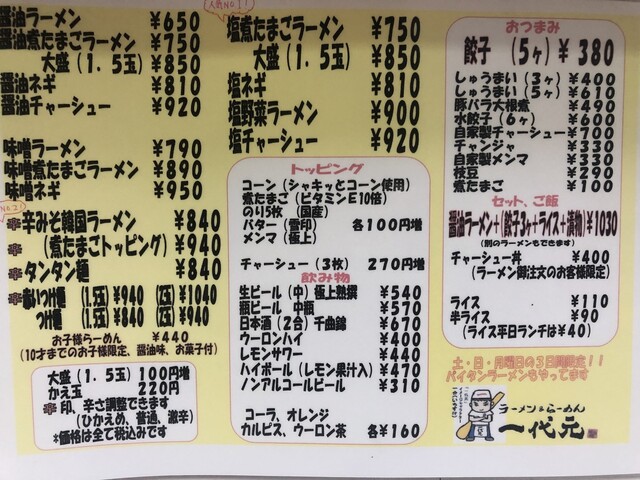 醤油ラーメン ¥650
醤油煮たまごラーメン ¥750
大盛(1.5玉) ¥850
醤油ネギ ¥810
醤油チャーシュー ¥920
味噌ラーメン ¥790
味噌煮たまごラーメン ¥890
味噌ネギ ¥950
辛 辛みそ韓国ラーメン ¥840
辛 (煮たまごトッピング) ¥940
辛 タンタン麺 ¥840
辛 辛いつけ麺 (1.5玉)¥940 (2玉)¥1040
つけ麺 (1.5玉)¥840 (2玉)¥940
お子様らーめん ¥440
(10才までのお子様限定、醤油味、お菓子付)
大盛(1.5玉) 100円増
かえ玉 220円
辛 印、辛さ調整できます
(ひかえめ、普通、激辛)
*価格は全て税込みです
人気No.1!
塩煮たまごラーメン ¥750
大盛(1.5玉) ¥850
塩ネギ ¥810
塩野菜ラーメン ¥900
塩チャーシュー ¥920
トッピング
コーン(シャキッとコーン使用)
煮たまご(ビタミンE10倍)
のり5枚(国産)
バター(雪印) 各100円増
メンマ(極上)
チャーシュー(3枚) 270円増
飲み物
生ビール(中)極上熟撰 ¥540
瓶ビール 中瓶 ¥570
日本酒(2合)千曲錦 ¥670
ウーロンハイ ¥400
レモンサワー ¥440
ハイボール(レモン果汁入) ¥470
ノンアルコールビール ¥310
コーラ、オレンジ
カルピス、ウーロン茶 各¥160
おつまみ
餃子(5ヶ) ¥380
しゅうまい(3ヶ) ¥400
しゅうまい(5ヶ) ¥610
豚バラ大根煮 ¥490
水餃子(6ヶ) ¥600
自家製チャーシュー ¥700
チャンジャ ¥330
自家製メンマ ¥330
枝豆 ¥290
煮たまご ¥100
セット、ご飯
醤油ラーメン+(餃子3ヶ+ライス+漬物)¥1030
(別のラーメンもできます)
チャーシュー丼 ¥400
(ラーメン御注文のお客様限定)
ライス ¥110
半ライス ¥90
(ライス平日ランチは¥40)
土・日・月曜日の3日間限定!!
パイタンラーメンもやってます
ラーメン&らーめん
一代元